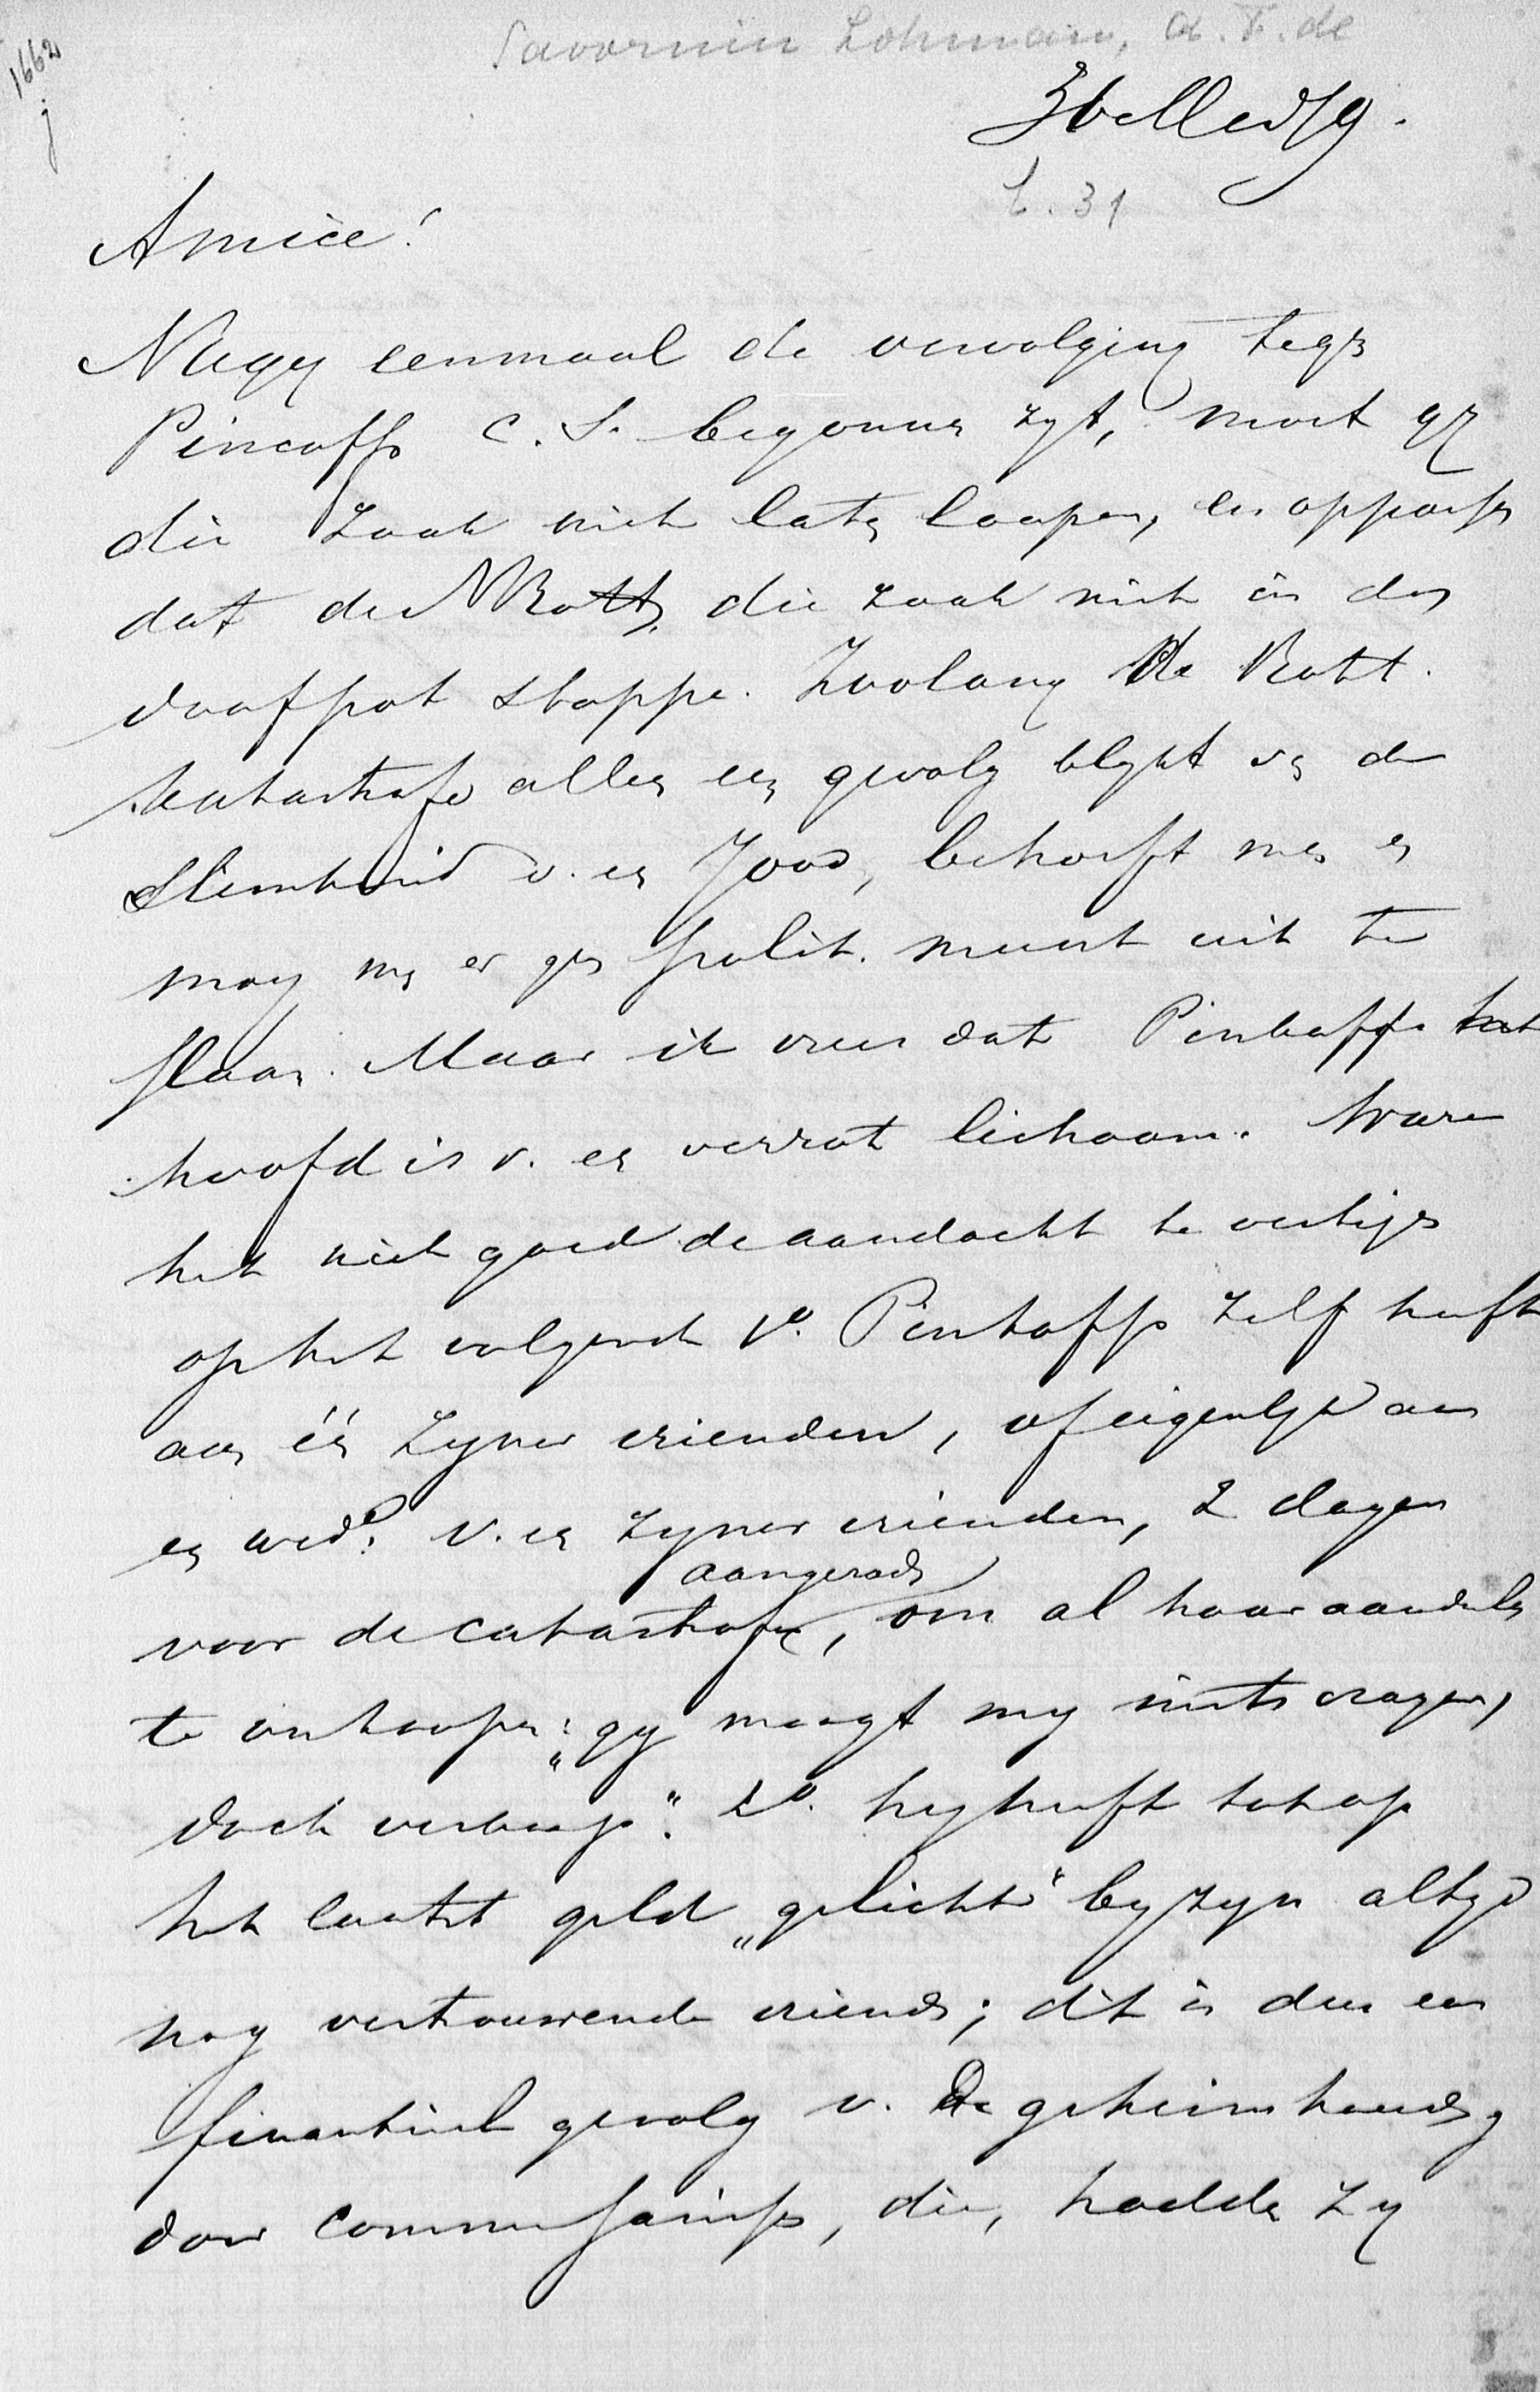 1662
j
Savornin Lohman, A. F. de
L. 31
Amice!
Nu gy eenmaal de vervolging tegen
Pincoffs c.s. begonnen zyt, moet gy
die zaak niet laten loopen, en oppassen
dat de NRott. die zaak niet in den
doofpot stoppe. Zoolang de Rott.
katastrofe alleen een gevolg blykt van de
slimheid v. een Jood, behoeft men en
mag men er geen polit. munt uit te
slaan. Maar ik vrees dat Pinkoffs het
hoofd is v. een verrot lichaam. Ware
het niet goed de aandacht te vestigen
op het volgende 1o. Pinkoffs zelf heeft
aan één zyner vrienden, of eigenlyk aan
een wede. v. een zyner vrienden, 2 dagen
aangeraden
voor de catastrofe, om al haar aandeelen
te verkoopen: „gy moogt my niets vragen,
doch verkoop". 2o. hy heeft tot op
het laatst geld „gelicht" by zyn altyd
nog vertrouwende vrienden; dit is dus een
financieel gevolg v. de geheimhouding
door commissarissen, die, hadden zy